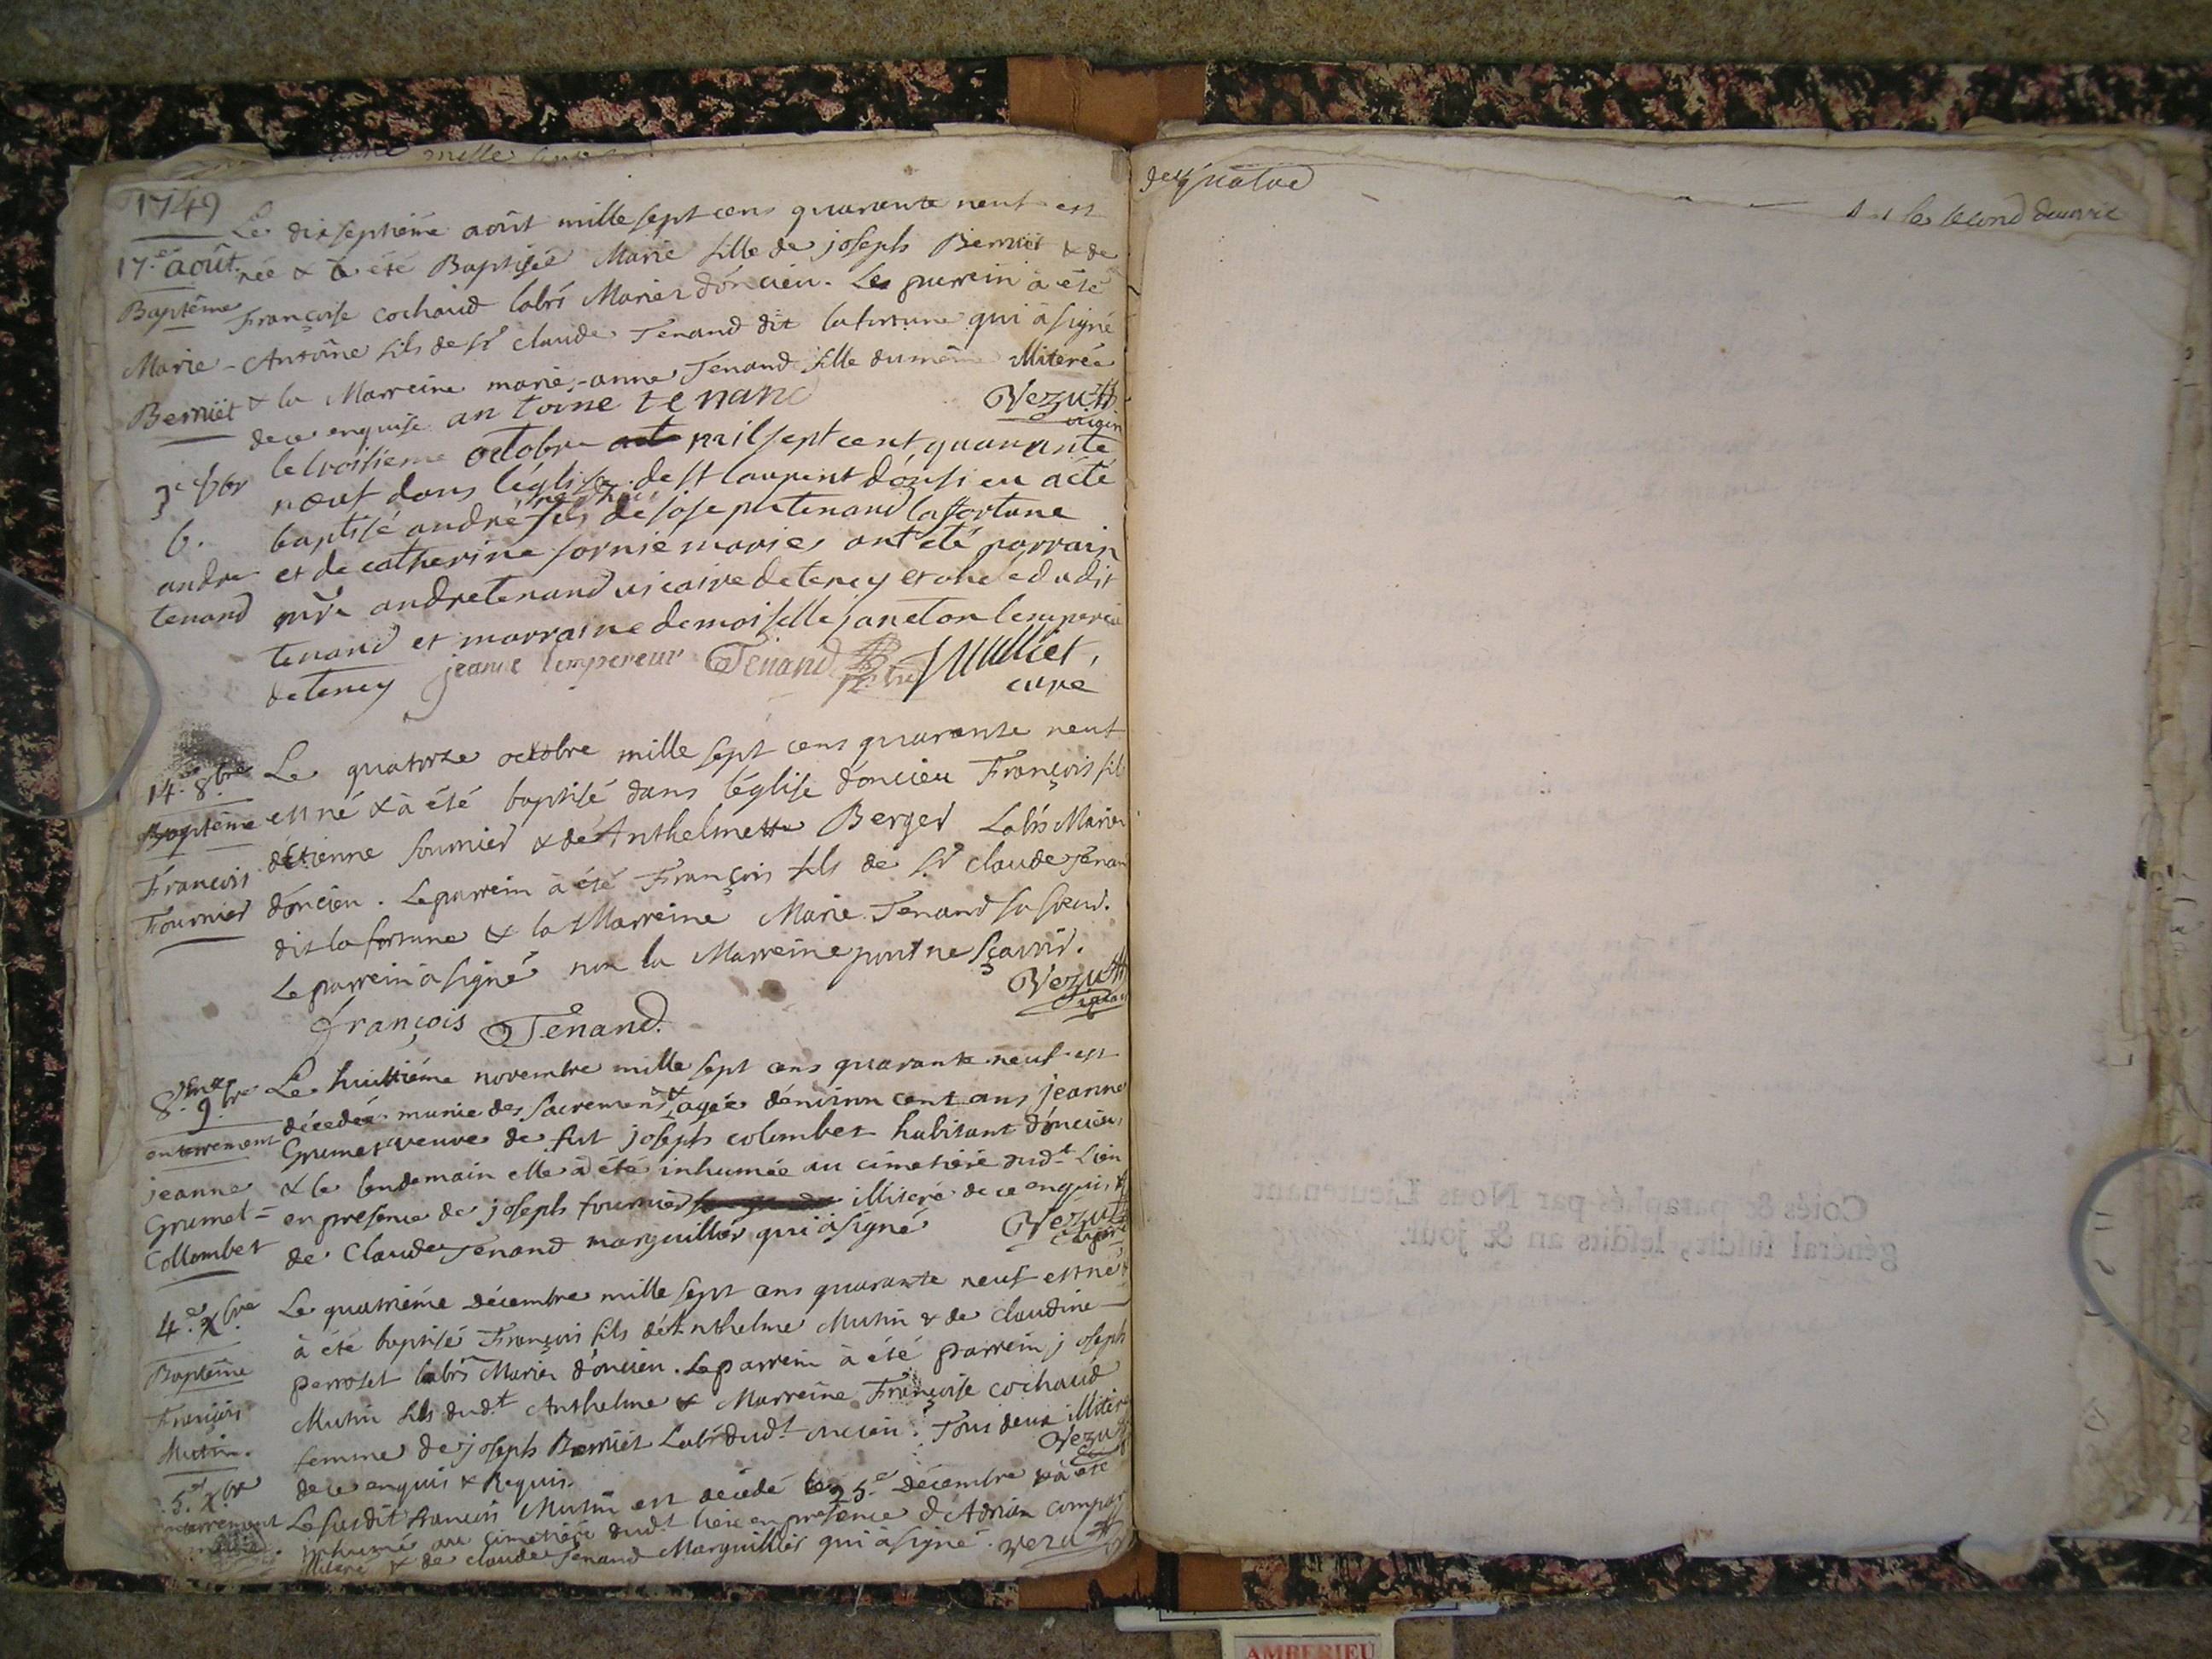 1749
Le dixseptiéme août mille sept cens quarante neuf est
17.e août née & à été Baptisée Marie fille de joseph Berniet & de
Baptême Françoise cochaud labrs Mariez d'oncieu. Le parrein à été
Marie - Antoine fils de sr claude Tenand dit lafortune qui à signé
Berniet & la Marreine marie-anne Tenand fille du même illiterée
de ce enquise antoine tenand Vezu
3e 8br le troisieme octobre mil sept cent quarante
noeuf dans léglise de st laurent dónsieu a été
b. baptisé andré fils de joseph tenand lafortune
andre et de catherine fornie mariés ont été parrain
tenand mre andre tenand vicaire de teney et oncle du dit
tenand et marraine demoiselle janeton lempereur
de teney jeanne lempereur Tenand ptre Julliet,
curé
14.e 8.bre Le quatorze octobre mille sept cens quarante neuf
Baptême est né & à été baptisé dans léglise d'oncieu François fils
François d'étienne fournier & de Anthelmette Berger Labrs Mariez
Fournier d'oncieu. Le parrein à été François fils de sr claude Tenand
dit la fortune & la Marreine Marie Tenand sa soeur.
Le parrein à signé non la Marreine pour ne sçavoir.
Vezu
françois Tenand.
8.e 9.bre Le huittiéme novembre mille sept cens quarante neuf est
décedée munie des sacremens agée d'environ cent ans jeanne
enterrement Grumet veuve de fut joseph colombet habitant d'oncieu,
jeanne & le lendemain elle à été inhumée au cimetiére dud.t Lieu
Grumet = en presence de joseph fournier illiteré de ce enquis &
Collombet de Claude Tenand marguillier qui à signé Vezu
4.e X.bre Le quatriéme décembre mille sept cens quarante neuf est né &
à été baptisé François fils d'Anthelme Mutin & de claudine
Baptême perroset labrs Mariéz d'oncieu. Le parrein à été parrein joseph
François Mutin fils dud.t Anthelme & Marreine Françoise cochaud
Mutin. femme de joseph Berniet Labr dud.t oncieu. Tous deux illiterés
de ce enquis & Requis. Vezu
5.e X.bre Le susdit francois Mutin est décédé le 25.e décembre & à été
enterrement inhumé au cimetiére dud.t lieu en presence d'Adrien
illiteré & de claude Tenand Marguillier qui à signé. Vezu
Cotés & paraphés par Nous Lieutenant
général susdit, lesdits an & jour.
AMBERIEU